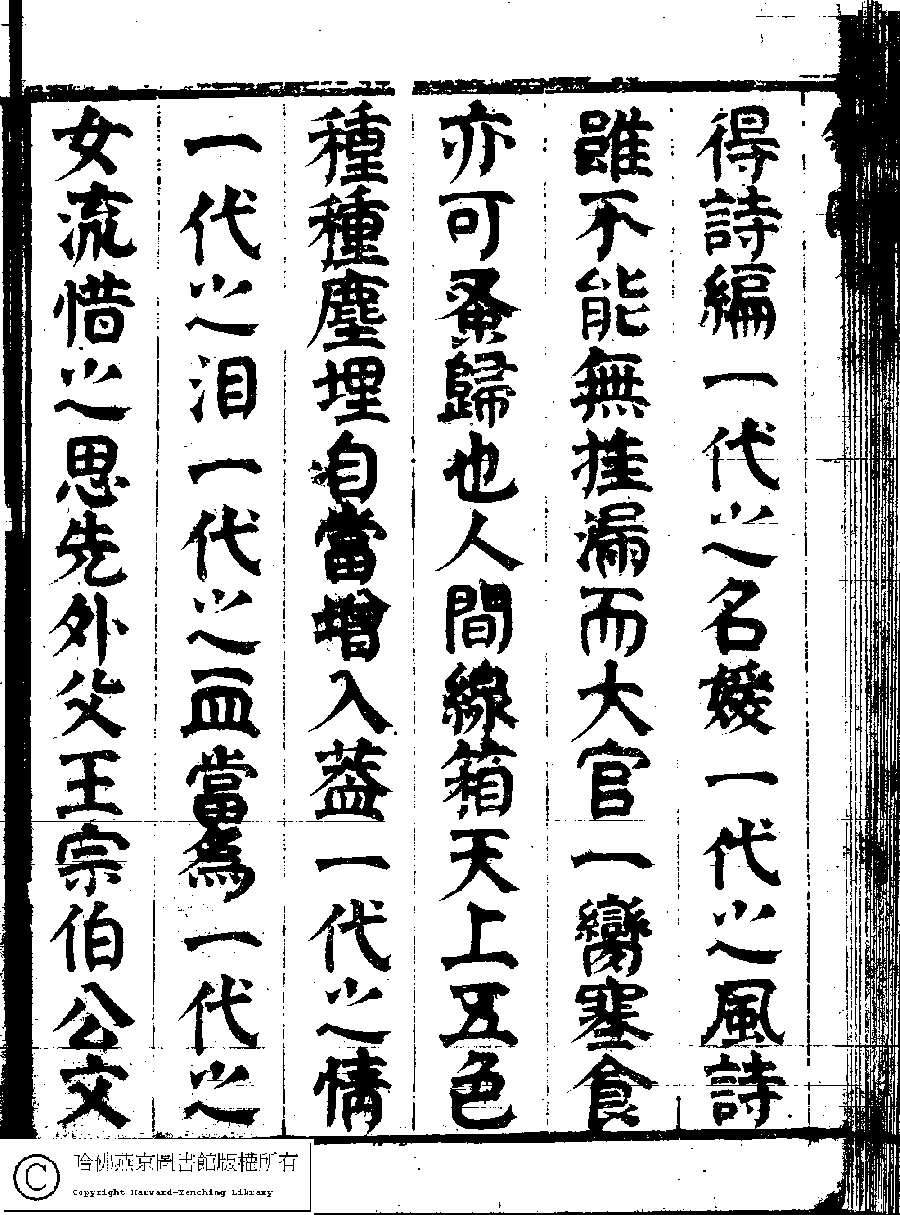 得詩編一代之名媛一代之風詩
雖不能無挂漏而大官一臠塞食
亦可蚤歸也人間線箱天上五色
種種塵埋自當增入葢一代之情
一代之淚一代之血當為一代之
女流惜之思先外父王宗伯公文
哈佛燕京圖書館版權所有
Copyright Harvard-Yenching Library